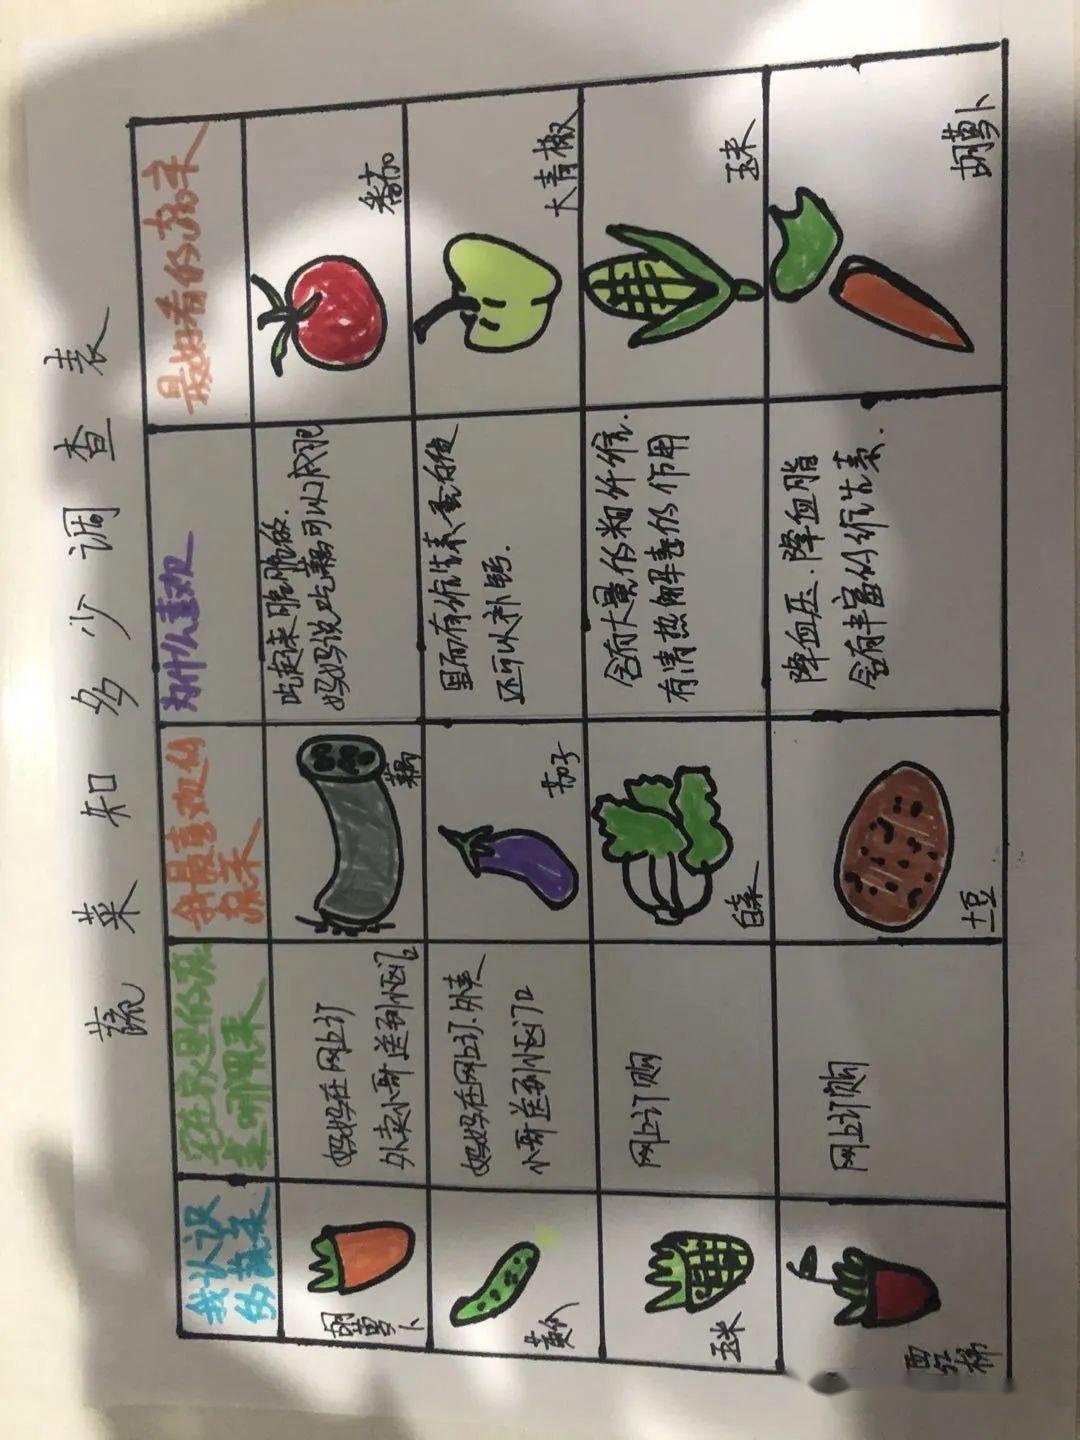 蔬菜知多少调查表
我认识
的蔬菜
现在家里的蔬
菜哪里来
我最喜欢的
蔬菜
为什么喜欢
最好看的蔬菜
胡萝卜
妈妈在网上订
外卖小哥送到小区门口
藕
吃起来脆脆的.
妈妈说吃藕可以减肥
番茄
黄瓜
妈妈在网上订.外卖
小哥送到小区门口
茄子
里面有维生素、蛋白质
还可以补钙.
大青椒
玉米
网上订购
白菜
含有大量的粗纤维.
有清热解毒的作用
玉米
西红柿
网上订购
土豆
降血压.降血脂
含有丰富的维生素.
胡萝卜